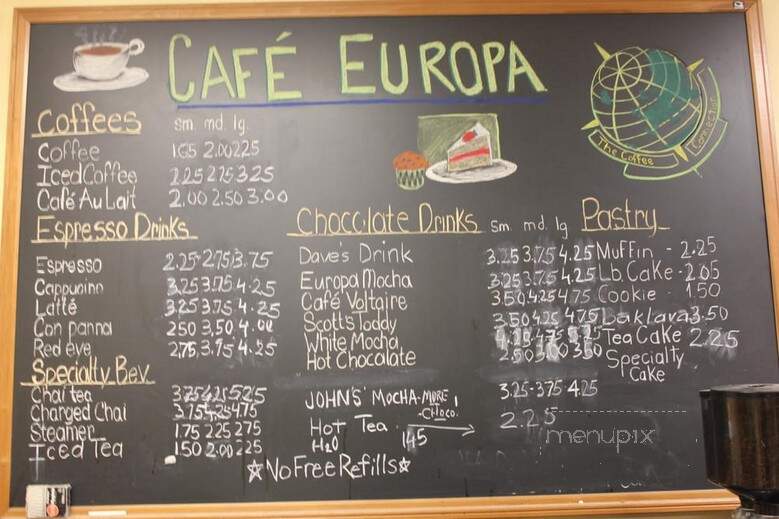 CAFÉ EUROPA
The Coffee Connection
Coffees sm. md. lg.
Coffee 1.65 2.00 2.25
Iced Coffee 2.25 2.75 3.25
Café Au Lait 2.00 2.50 3.00
Espresso Drinks
Espresso 2.25 2.75 3.75
Cappuccino 3.25 3.75 4.25
Latté 3.25 3.75 4.25
Con panna 2.50 3.50 4.00
Red eye 2.75 3.75 4.25
Specialty Bev.
Chai tea 3.75 4.25 5.25
Charged Chai 3.75 4.25 4.75
Steamer 1.75 2.25 2.75
Iced Tea 1.50 2.00 2.25
Chocolate Drinks Sm md. lg
Dave's Drink 3.25 3.75 4.25
Europa Mocha 3.25 3.75 4.25
Café Voltaire 3.50 4.25 4.75
Scott's Toddy 3.50 4.25 4.75
White Mocha 4.75
Hot Chocolate 2.50 3.00 3.50
JOHN'S MOCHA-MORE CHOCO. 3.25 3.75 4.25
Hot Tea 1.45 2.25
H2O
☆No Free Refills☆
Pastry
Muffin - 2.25
Lb Cake - 2.05
Cookie 1.50
Baklava 3.50
Tea Cake 2.25
Specialty
Cake
menupix